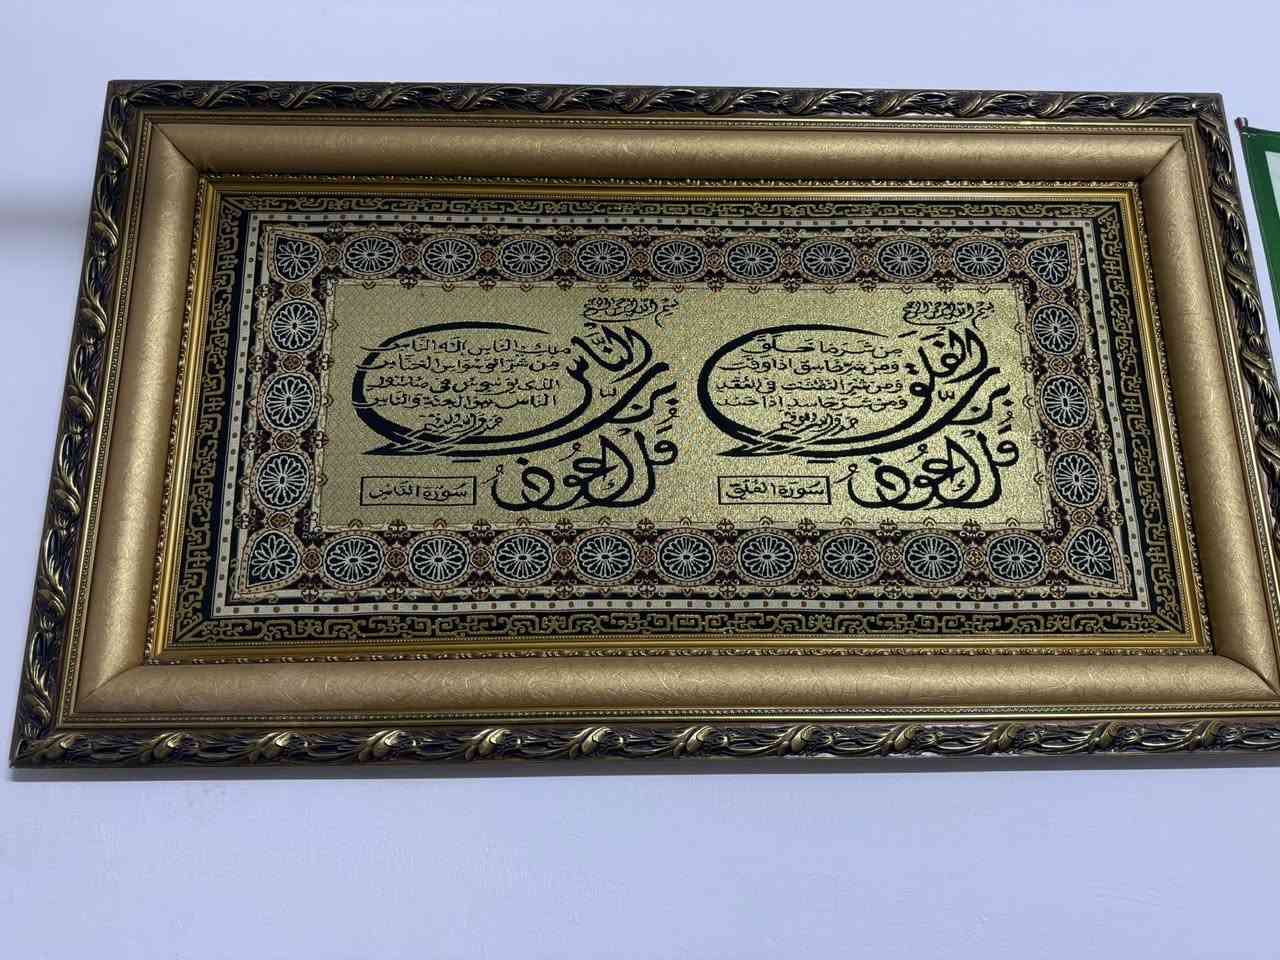 بسم الله الرحمن الرحيم
قل اعوذ
برب الفلق
من شر ما خلق
ومن شر غاسق اذا وقب
ومن شر النفثت في العقد
ومن شر حاسد اذا حسد
سورة الفلق
بسم الله الرحمن الرحيم
قل اعوذ
برب الناس
ملك الناس اله الناس
من شر الوسواس الخناس
الذي يوسوس في صدور
الناس من الجنة والناس
سورة الناس